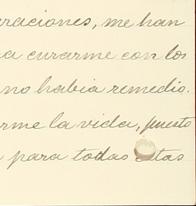 raciones, me han
a curarme con los
no habia remedio.
rme la vida, puesto
para todas estas